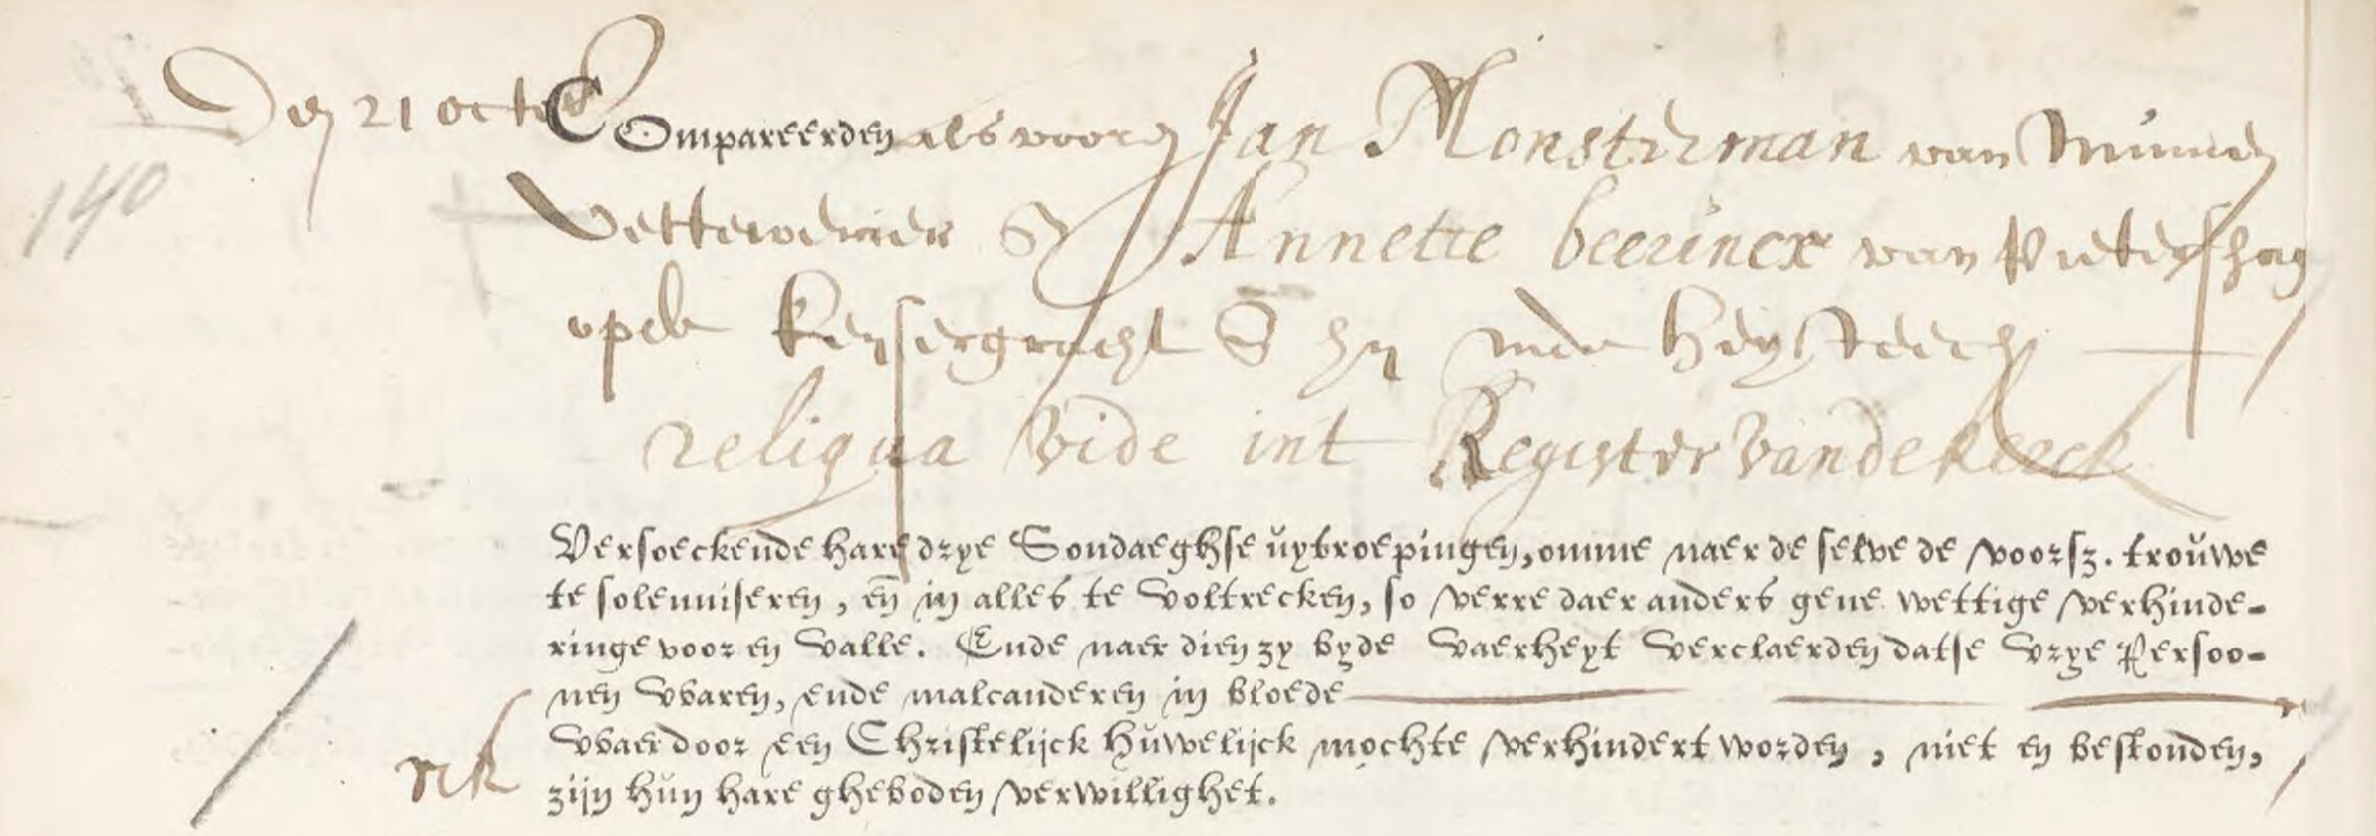 Den 21 octob Compareerden als vooren Jan Monsterman van Munnen
Vettewerier & Annette beerincx van Pietershag
opde keysergracht & hy inde Heysteech
reliqua vide int Register vande keerck
140
Versoeckende hare drye Sondaeghse uytroepingen, omme naer de selve de voorsz. trouwe
te solenniseren, eñ in alles te voltrecken, so verre daer anders gene wettige verhinde-
ringe voor en valle. Ende naer dien zy byde waerheyt verclaerden datse vrye Persoo-
nen waren, ende malcanderen in bloede
waer door een Christelijck huwelijck mochte verhindert worden, niet en bestonden,
zijn hun hare gheboden verwillighet.
nk